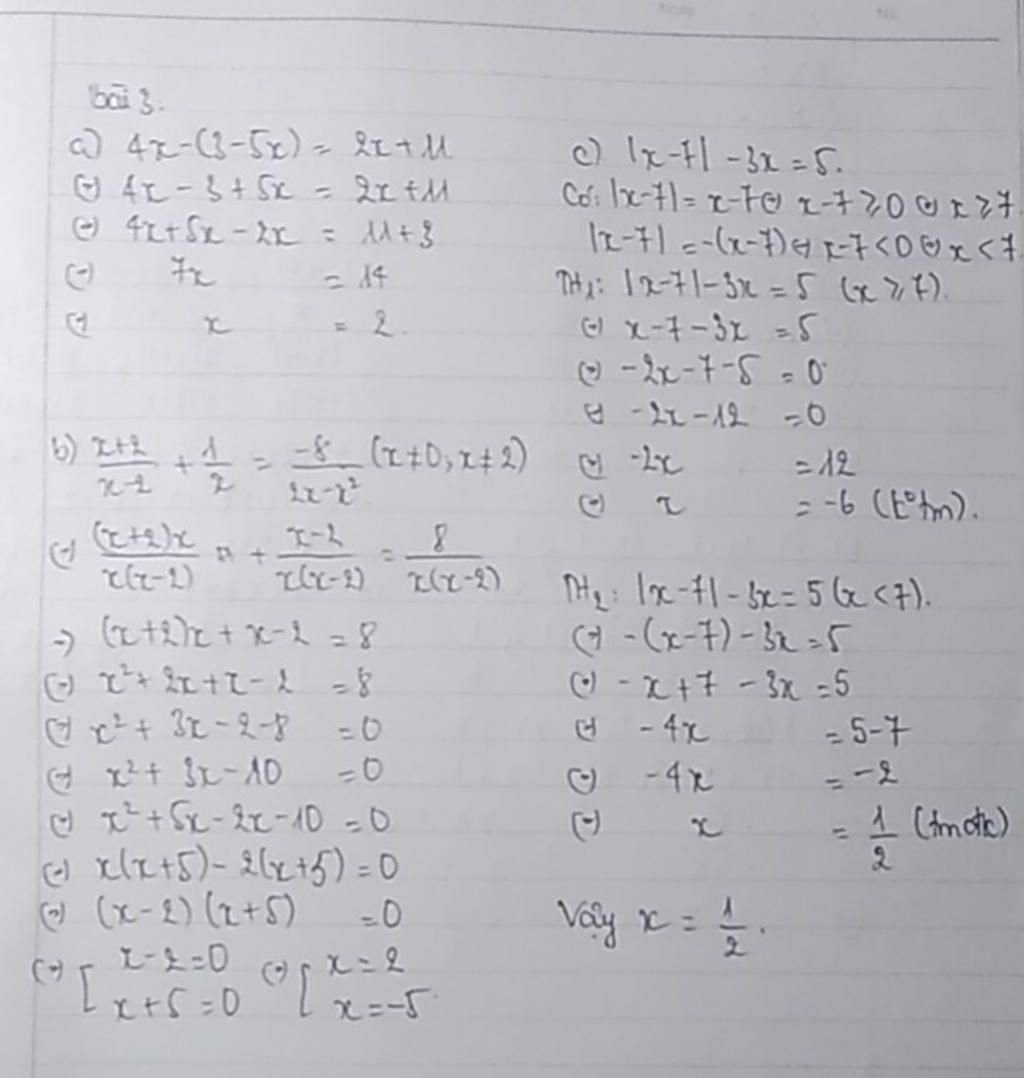 bài 3.
a) 4x-(3-5x) = 2x+11
(=) 4x - 3 + 5x = 2x+11
(=) 4x+5x-2x = 11+3
(=) 7x = 14
(=) x = 2.
b) \frac{x+2}{x-2} + \frac{1}{x} = \frac{-8}{2x-x²} (x≠0; x≠2)
(=) \frac{(x+2)x}{x(x-2)} + \frac{x-2}{x(x-2)} = \frac{8}{x(x-2)}
=> (x+2)x + x-2 = 8
(=) x²+2x+x-2 = 8
(=) x²+3x-2-8 = 0
(=) x²+3x-10 = 0
(=) x²+5x-2x-10 = 0
(=) x(x+5)-2(x+5) = 0
(=) (x-2)(x+5) = 0
(=) [ x-2=0 (=) [ x=2
x+5=0 x=-5
c) |x-7| -3x = 5.
Có: |x-7| = x-7 (=) x-7 ≥ 0 (=) x ≥ 7
|x-7| = -(x-7) (=) x-7 < 0 (=) x < 7.
TH₁: |x-7|-3x = 5 (x ≥ 7).
(=) x-7-3x = 5
(=) -2x-7-5 = 0
(=) -2x-12 = 0
(=) -2x = 12
(=) x = -6 (t°tm).
TH₂: |x-7| -3x = 5 (x < 7).
(=) -(x-7)-3x = 5
(=) -x+7-3x = 5
(=) -4x = 5-7
(=) -4x = -2
(=) x = \frac{1}{2} (tmđk)
Vậy x = \frac{1}{2}.